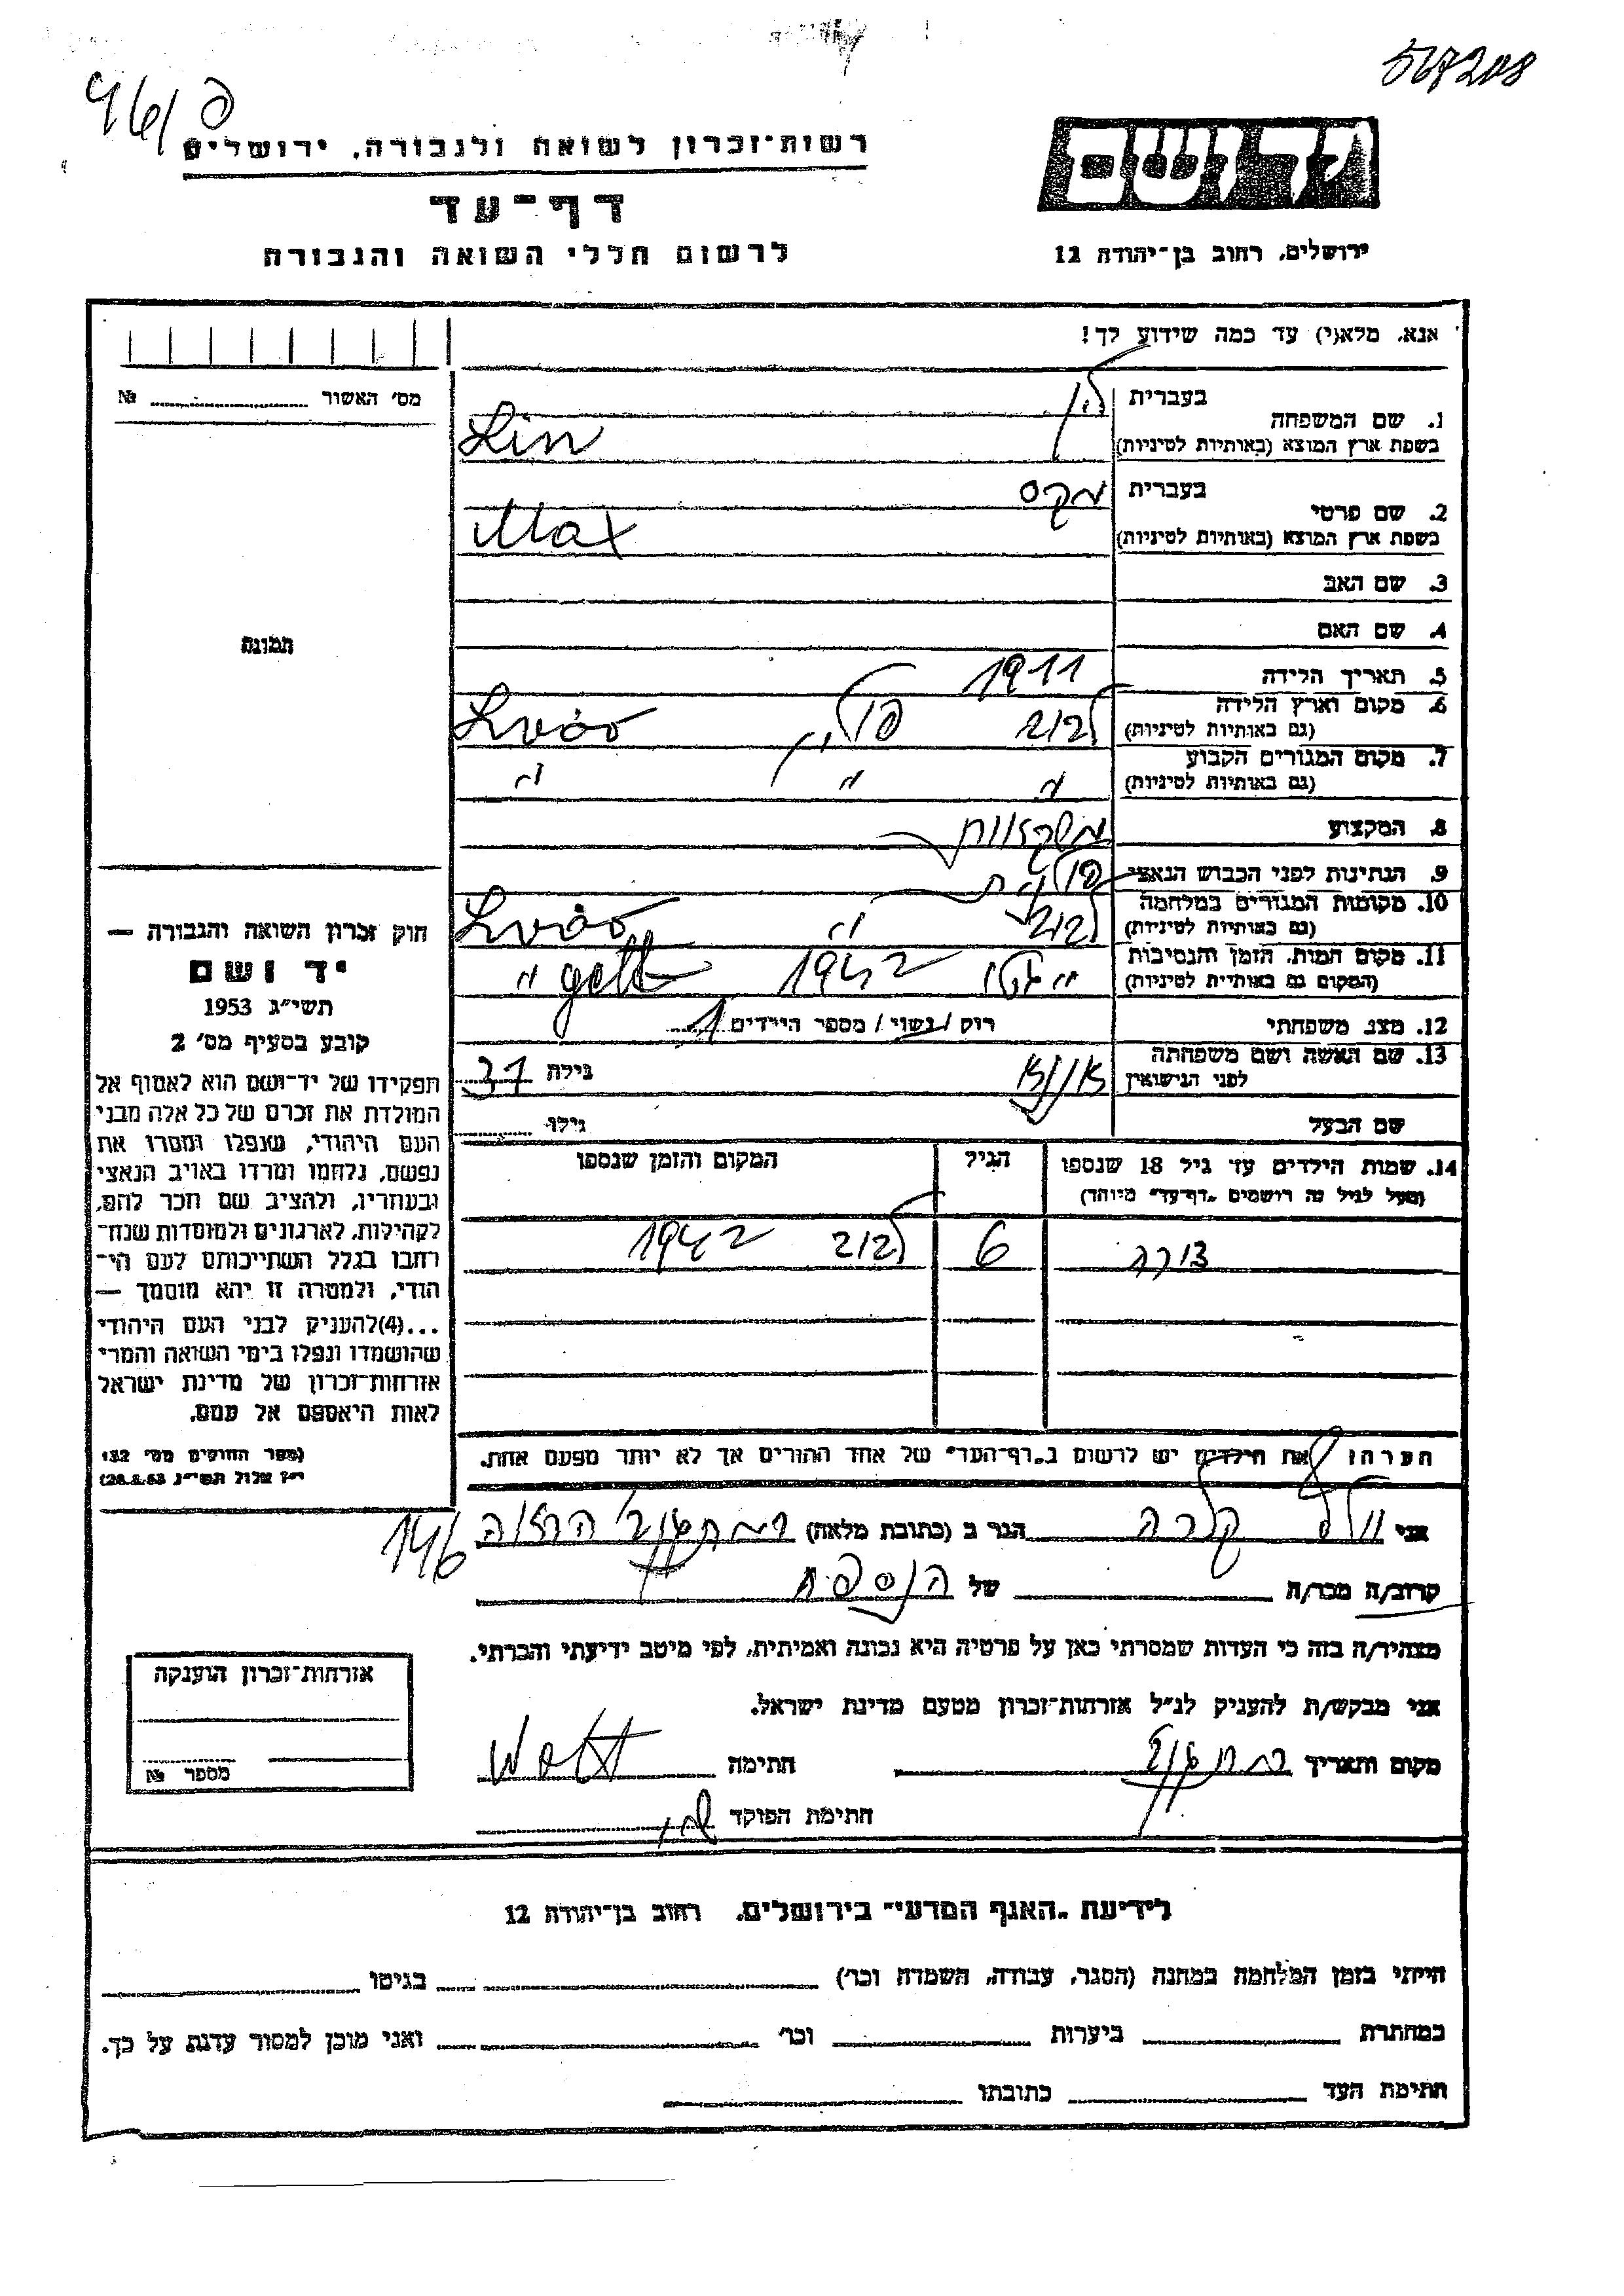 567208
96/פ
רשות־זכרון לשואה ולגבורה, ירושלים
דף־עד
לרשום חללי השואה והגבורה
יד ושם
ירושלים, רחוב בן־יהודה 12
אנא, מלא(י) עד כמה שידוע לך!
מס׳ האשור № 
1. שם המשפחה
בעברית לין
בשפת ארץ המוצא (באותיות לטיניות) Lin
2. שם פרטי
בעברית מקס
בשפת ארץ המוצא (באותיות לטיניות) Max
3. שם האב
4. שם האם
תמונה
5. תאריך הלידה 1911
6. מקום וארץ הלידה לבוב פולין Lwów
(גם באותיות לטיניות)
7. מקום המגורים הקבוע " " "
(גם באותיות לטיניות)
8. המקצוע
9. הנתינות לפני הכבוש הנאצי פולנית
10. מקומות המגורים במלחמה לבוב " Lwów
(גם באותיות לטיניות)
11. מקום המות, הזמן והנסיבות " 1942 "
(המקום גם באותיות לטיניות)
12. מצב משפחתי רוק / נשוי / מספר הילדים 1
13. שם האשה ושם משפחתה
לפני הנישואין גילה 37
שם הבעל גילו
14. שמות הילדים עד גיל 18 שנספו הגיל המקום והזמן שנספו
(מעל לגיל זה רושמים „דף־עד״ מיוחד)
6 לבוב 1942
חוק זכרון השואה והגבורה —
יד ושם
תשי״ג 1953
קובע בסעיף מס׳ 2
תפקידו של יד־ושם הוא לאסוף אל
המולדת את זכרם של כל אלה מבני
העם היהודי, שנפלו ומסרו את
נפשם, נלחמו ומרדו באויב הנאצי
ובעוזריו, ולהציב שם וזכר להם,
לקהילות, לארגונים ולמוסדות שנח־
רבו בגלל השתייכותם לעם הי־
הודי, ולמטרה זו יהא מוסמך —
...(4)להעניק לבני העם היהודי
שהושמדו ונפלו בימי השואה והמרי
אזרחות־זכרון של מדינת ישראל
לאות היאספם אל עמם.
(ספר החוקים מס׳ 132
י״ז אלול תשי״ג 28.8.53)
הערה: את הילדים יש לרשום ב„דף־העד״ של אחד ההורים אך לא יותר מפעם אחת.
אני קלרה הגר ב (כתובת מלאה)
146
קרוב/ה מכר/ה של הנספה
מצהיר/ה בזה כי העדות שמסרתי כאן על פרטיה היא נכונה ואמיתית, לפי מיטב ידיעתי והכרתי.
אני מבקש/ת להעניק לנ״ל אזרחות־זכרון מטעם מדינת ישראל.
מקום ותאריך חתימה
חתימת הפוקד
אזרחות־זכרון הוענקה
מספר №
לידיעת „האגף המדעי״ בירושלים, רחוב בן־יהודה 12
הייתי בזמן המלחמה במחנה (הסגר, עבודה, השמדה וכו׳) בגיטו
במחתרת ביערות וכו׳ ואני מוכן למסור עדות על כך.
חתימת העד כתובתו